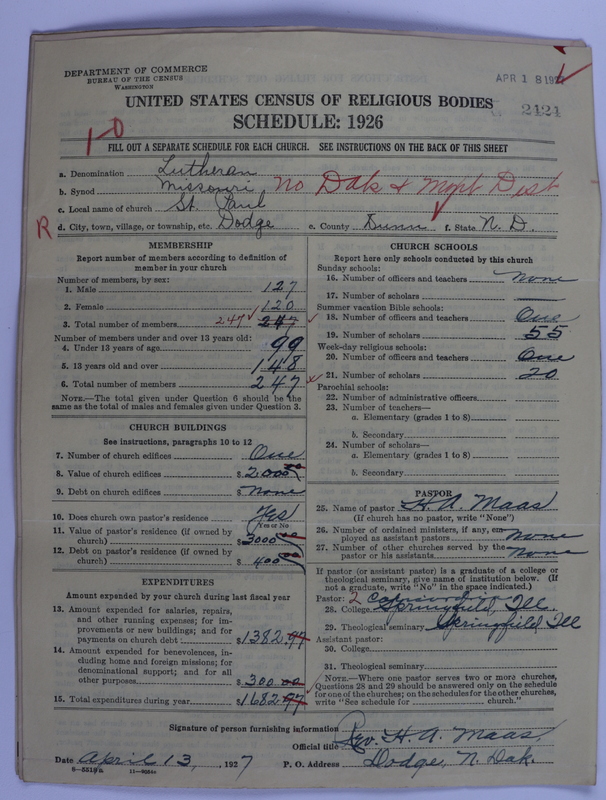 DEPARTMENT OF COMMERCE
BUREAU OF THE CENSUS
WASHINGTON
APR 18 1927
UNITED STATES CENSUS OF RELIGIOUS BODIES
2424
SCHEDULE: 1926
1-0
FILL OUT A SEPARATE SCHEDULE FOR EACH CHURCH. SEE INSTRUCTIONS ON THE BACK OF THIS SHEET
a. Denomination Lutheran
b. Synod Missouri No Dak & Mont Dist
c. Local name of church St. Paul
R d. City, town, village, or township, etc. Dodge e. County Dunn f. State N. D.
MEMBERSHIP
Report number of members according to definition of
member in your church
Number of members, by sex:
1. Male 127
2. Female 120
3. Total number of members 247 247
Number of members under and over 13 years old:
4. Under 13 years of age 99
5. 13 years old and over 148
6. Total number of members 247
NOTE.—The total given under Question 6 should be the
same as the total of males and females given under Question 3.
CHURCH BUILDINGS
See instructions, paragraphs 10 to 12
7. Number of church edifices One
8. Value of church edifices $ 2000 00
9. Debt on church edifices $ None
10. Does church own pastor's residence Yes
Yes or No
11. Value of pastor's residence (if owned by
church) $ 3000 00
12. Debt on pastor's residence (if owned by
church) $ 400 00
EXPENDITURES
Amount expended by your church during last fiscal year
13. Amount expended for salaries, repairs,
and other running expenses; for im-
provements or new buildings; and for
payments on church debt $ 1382.97
14. Amount expended for benevolences, in-
cluding home and foreign missions; for
denominational support; and for all
other purposes $ 300.00
15. Total expenditures during year $ 1682.97
CHURCH SCHOOLS
Report here only schools conducted by this church
Sunday schools:
16. Number of officers and teachers None
17. Number of scholars
Summer vacation Bible schools:
18. Number of officers and teachers One
19. Number of scholars 55
Week-day religious schools:
20. Number of officers and teachers One
21. Number of scholars 20
Parochial schools:
22. Number of administrative officers
23. Number of teachers—
a. Elementary (grades 1 to 8)
b. Secondary
24. Number of scholars—
a. Elementary (grades 1 to 8)
b. Secondary
PASTOR
25. Name of pastor H. A. Maas
(If church has no pastor, write "None")
26. Number of ordained ministers, if any, em-
ployed as assistant pastors None
27. Number of other churches served by the
pastor or his assistants None
If pastor (or assistant pastor) is a graduate of a college or
theological seminary, give name of institution below. (If
not a graduate, write "No" in the space indicated.)
Pastor: 2
28. College Springfield, Ill.
29. Theological seminary Springfield Ill
Assistant pastor:
30. College
31. Theological seminary
NOTE.—Where one pastor serves two or more churches,
Questions 28 and 29 should be answered only on the schedule
for one of the churches; on the schedules for the other churches,
write "See schedule for church."
Signature of person furnishing information H. A. Maas
Official title Rev.
Date April 13, , 1927 P. O. Address Dodge, N. Dak.